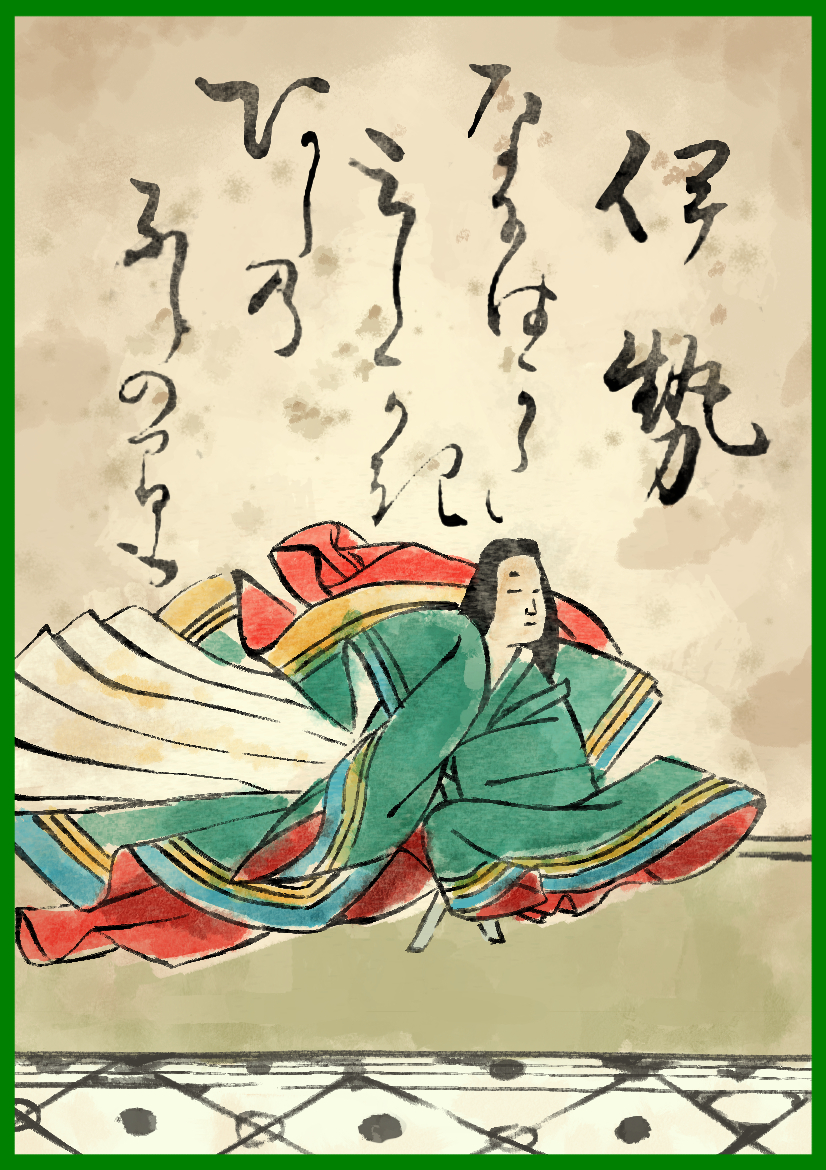 伊勢
なにはかた
みしかき
あし乃
ふしの間も